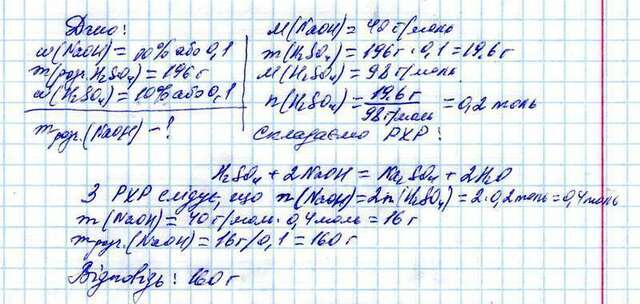 Дано:
w(NaOH) = 10% або 0,1
m(розч. H₂SO₄) = 196 г
w(H₂SO₄) = 10% або 0,1
m розч. (NaOH) - ?
M(NaOH) = 40 г/моль
m(H₂SO₄) = 196 г · 0,1 = 19,6 г
M(H₂SO₄) = 98 г/моль
n(H₂SO₄) = 19,6 г / 98 г/моль = 0,2 моль
Складаємо РХР:
H₂SO₄ + 2NaOH = Na₂SO₄ + 2H₂O
З РХР слідує, що n(NaOH) = 2n(H₂SO₄) = 2·0,2 моль = 0,4 моль
m(NaOH) = 40 г/моль · 0,4 моль = 16 г
m розч. (NaOH) = 16 г / 0,1 = 160 г
Відповідь: 160 г